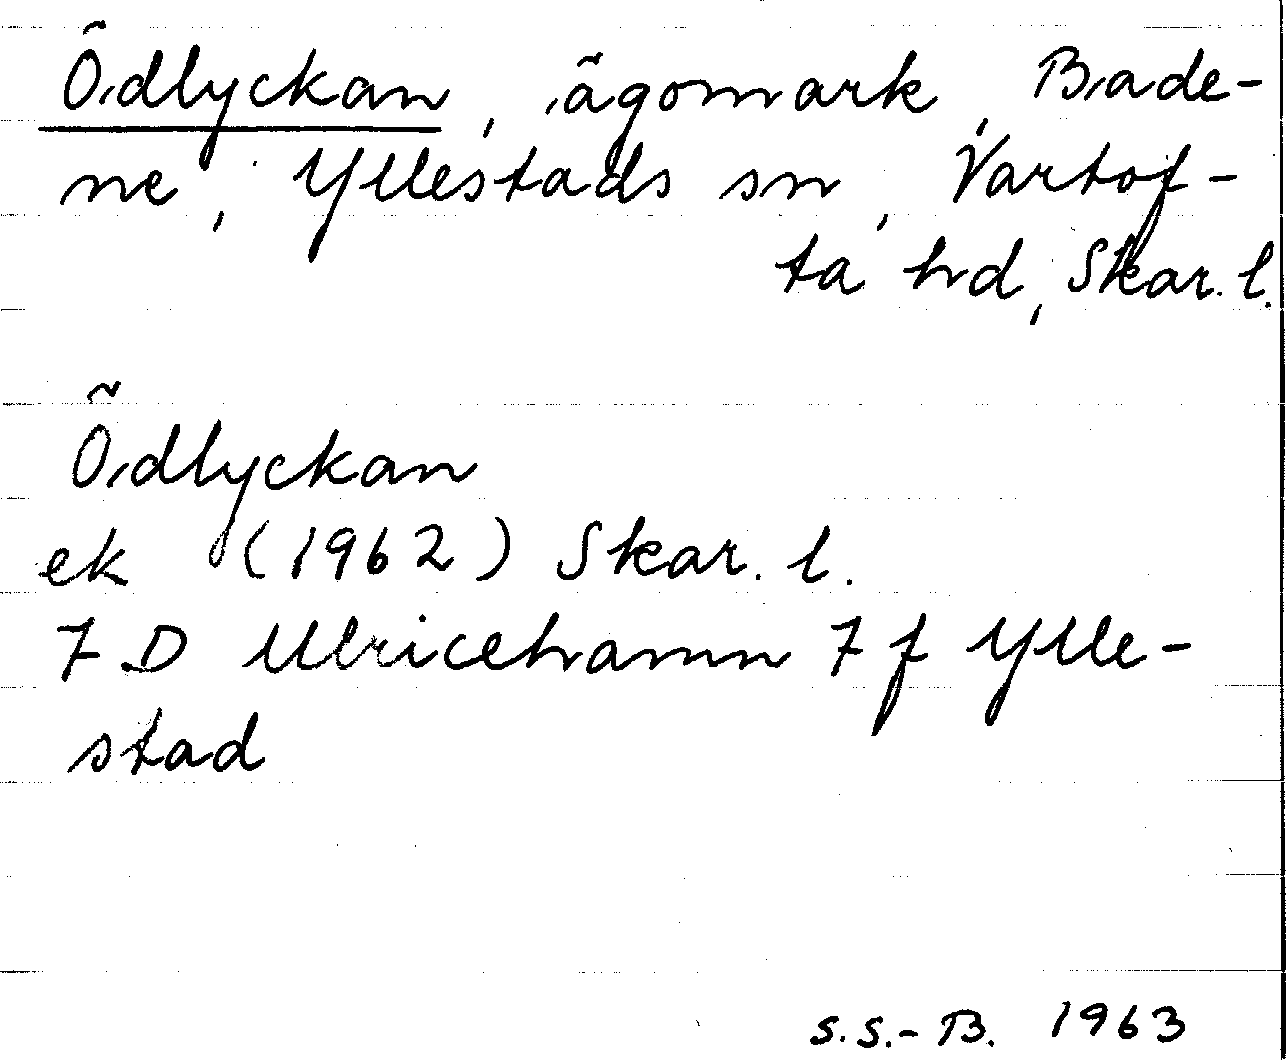 Ödlyckan, ägomark, Bade-
ne, Yllestads sn, Vartof-
ta hd, Skar. l.
Ödlyckan
ek (1962) Skar. l.
7 D Ulricehamn 7 f Ylle-
stad
S.S.-B. 1963